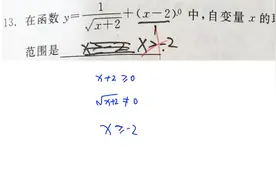 13. 在函数 y=1/√(x+2)+(x-2)⁰ 中,自变量 x 的
范围是 x>-2
x+2≥0
√(x+2)≠0
x≥-2